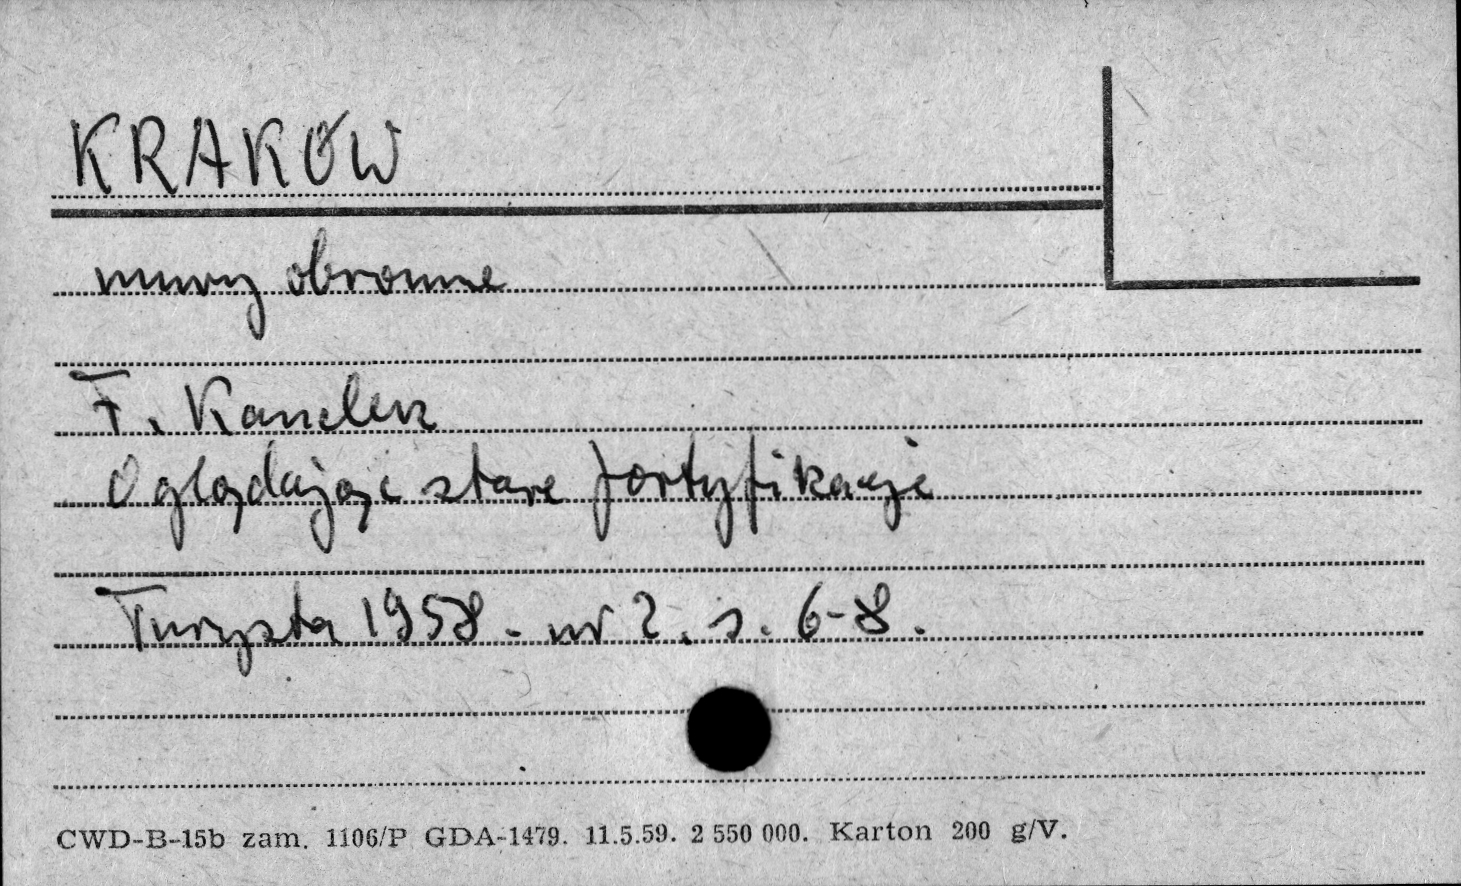 KRAKÓW
mury obronne
F. Kanclerz
Oglądając stare fortyfikacje
Turysta 1958 - nr 2. s. 6-8.
CWD-B-15b zam. 1106/P GDA-1479. 11.5.59. 2 550 000. Karton 200 g/V.